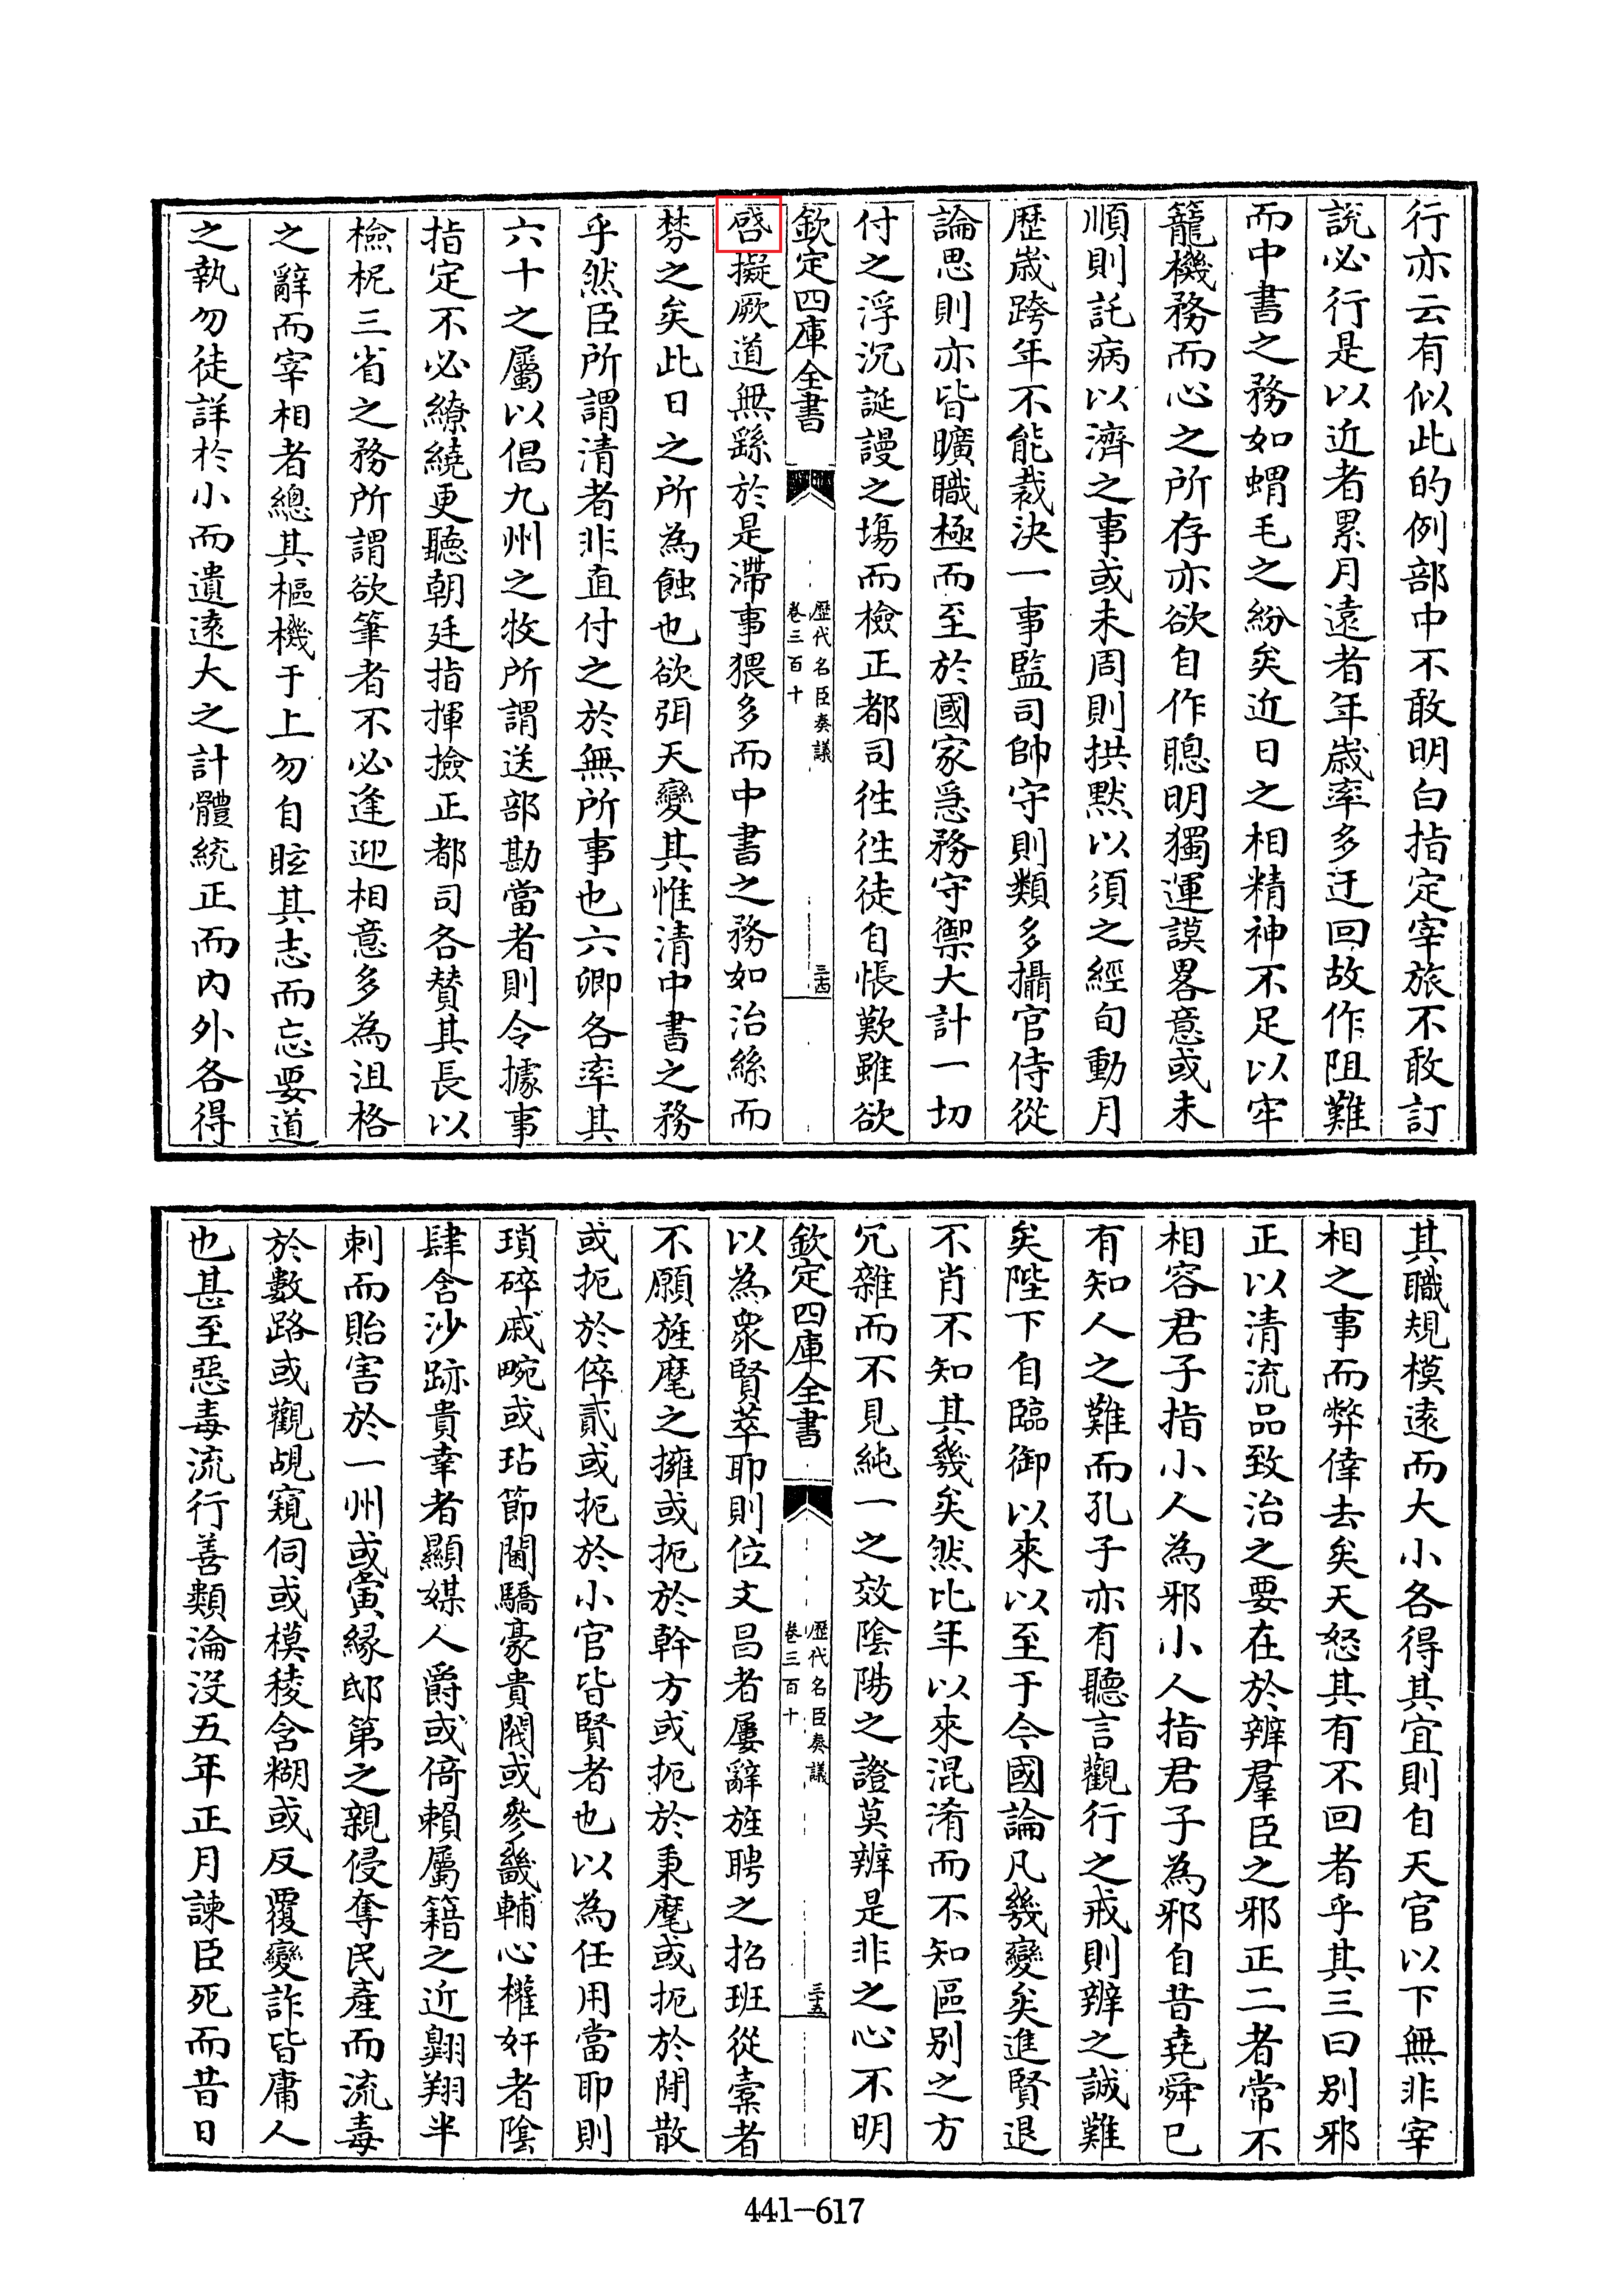 行亦云有似此的例部中不敢明白指定宰旅不敢訂
說必行是以近者累月遠者年歲率多迂回故作阻難
而中書之務如蝟毛之紛矣近日之相精神不足以牢
籠機務而心之所存亦欲自作聰明獨運謨畧意或未
順則託病以濟之事或未周則拱默以須之經旬動月
歷歲跨年不能裁決一事監司帥守則類多攝官侍從
論思則亦皆曠職極而至於國家急務守禦大計一切
付之浮沉誕謾之場而檢正都司徃徃徒自悵歎雖欲
欽定四庫全書
歷代名臣奏議
卷三百十
三十四
啓擬厥道無繇於是滯事猥多而中書之務如治絲而
棼之矣此日之所為蝕也欲弭天變其惟清中書之務
乎然臣所謂清者非直付之於無所事也六卿各率其
六十之屬以倡九州之牧所謂送部勘當者則令據事
指定不必繚繞更聽朝廷指揮撿正都司各贊其長以
檢柅三省之務所謂欲筆者不必逢迎相意多為沮格
之辭而宰相者總其樞機于上勿自眩其志而忘要道
之執勿徒詳於小而遺遠大之計體統正而內外各得
其職規模遠而大小各得其宜則自天官以下無非宰
相之事而弊倖去矣天怒其有不回者乎其三曰別邪
正以清流品致治之要在於辨羣臣之邪正二者常不
相容君子指小人為邪小人指君子為邪自昔堯舜已
有知人之難而孔子亦有聽言觀行之戒則辨之誠難
矣陛下自臨御以來以至于今國論凡幾變矣進賢退
不肖不知其幾矣然比年以來混淆而不知區別之方
冗雜而不見純一之效陰陽之證莫辨是非之心不明
欽定四庫全書
歷代名臣奏議
卷三百十
三十五
以為衆賢萃耶則位文昌者屢辭旌聘之招班從橐者
不願旌麾之擁或扼於幹方或扼於秉麾或扼於閒散
或扼於倅貳或扼於小官皆賢者也以為任用當耶則
瑣碎戚畹或玷節閫驕豪貴閥或參畿輔心權奸者陰
肆含沙跡貴幸者顯媒人爵或倚賴屬籍之近翺翔半
刺而貽害於一州或夤緣邸第之親侵奪民產而流毒
於數路或觀覘窺伺或模稜含糊或反覆變詐皆庸人
也甚至惡毒流行善類淪沒五年正月諫臣死而昔日
441-617